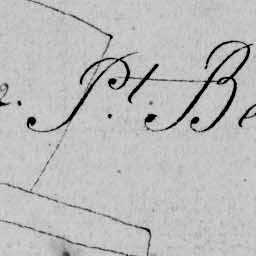 2. P.t Be